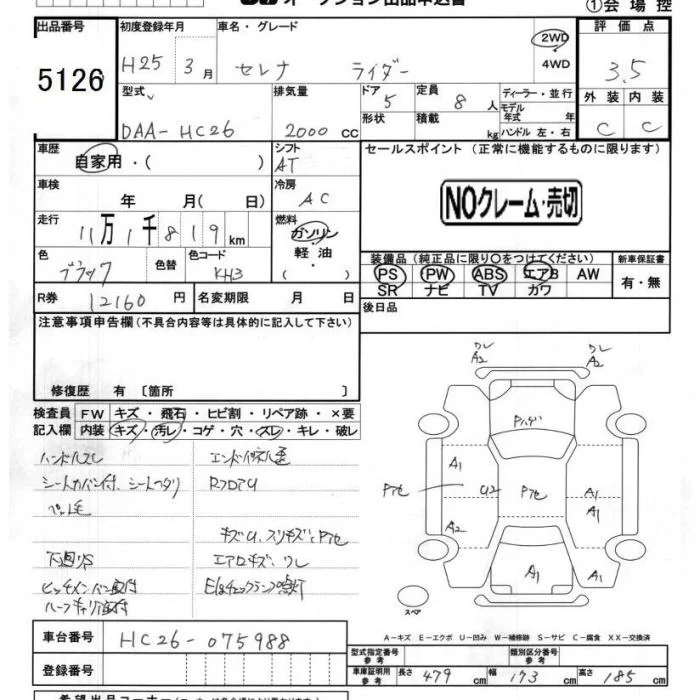 オークション出品申込書
①会場控
出品番号 初度登録年月 車名・グレード 評価点
5126 H25 3月 セレナ ライダー 2WD 4WD 3.5
型式 排気量 ドア 5 定員 8 人 ディーラー・並行 外装 内装
DAA-HC26 2000 cc 形状 積載 kg モデル年式 年 ハンドル 左・右 C C
車歴 自家用・( ) シフト AT セールスポイント (正常に機能するものに限ります)
車検 年 月( 日) 冷房 AC
NOクレーム・売切
走行 11万1千819km 燃料 ガソリン 軽油・
色 ブラック 色替 色コード KH3
装備品(純正品に限り○をつけてください) 新車保証書
PS PW ABS エアB AW 有・無
SR ナビ TV カワ
R券 12160円 名変期限 月 日 後日品
注意事項申告欄(不具合内容等は具体的に記入して下さい)
修復歴 有 〔箇所 〕
検査員 FW キズ・飛石・ヒビ割・リペア跡・×要
記入欄 内装 キズ・汚レ・コゲ・穴・スレ・キレ・破レ
ハンドルスレ
ペット毛
キズU、スリキズ、Pアセ
下廻りS エアロキズ、ワレ
ワレ A2 ワレ A2
Pハゲ
A1 PアセU2 Pアセ A1 A1
A2
A1 A1
スペア
車台番号 HC26-075988
A-キズ E-エクボ U-凹み W-補修跡 S-サビ C-腐食 XX-交換済
型式指定番号 参考 類別区分番号 参考
登録番号 車庫証明用 参考 長さ 479 cm 幅 173 cm 高さ 185 cm